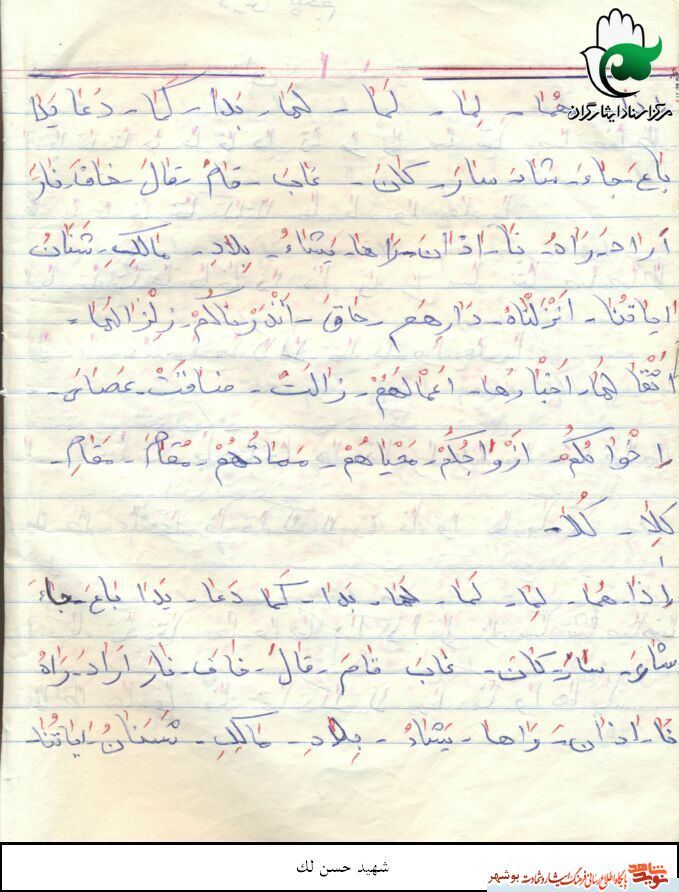 مرکز اسناد ایثارگران
اِذا - هُما - لِما - لَما - لَهَا - بَدا - كَما - دَعا يَدا
باعَ - جاءَ - شاءَ - سارَ - كانَ - غابَ - قامَ - قالَ - خافَ - نارَ
اَرادَ - راهُ - نا - اذانَ - راها - يَشاءُ - بِلادِ - مالِكِ - شَنَانُ
اياتُنا - اَنْزَلْناهُ - دارِهِم - حاقَ - اَنْذَرْناكُمْ - زِلْزالَها -
اَثْقالَها - اَخْبارَها - اَعْمالَهُمْ - زالَتْ - ضاقَتْ - عَصايَ -
اِخْوانُكُمْ - اَزْواجُكُمْ - مَحْياهُمْ - مَماتُهُمْ - مُقامَ - مَقامِ -
كِلا - كُلا -
اِذا - هُما - لِما - لَما - لَها - بَدا - كَما دَعا - يَدا باعَ - جاءَ
شاءَ - سارَ - كانَ - غابَ قامَ - قالَ - خافَ - نار اَرادَ - راهُ
نا - اذانَ - راها - يَشاءُ - بِلادِ - مالِكِ - شَنَانُ - اياتُنا -
شهید حسن لک
نوید شاهد
پایگاه اطلاع رسانی فرهنگ ایثار و شهادت بوشهر